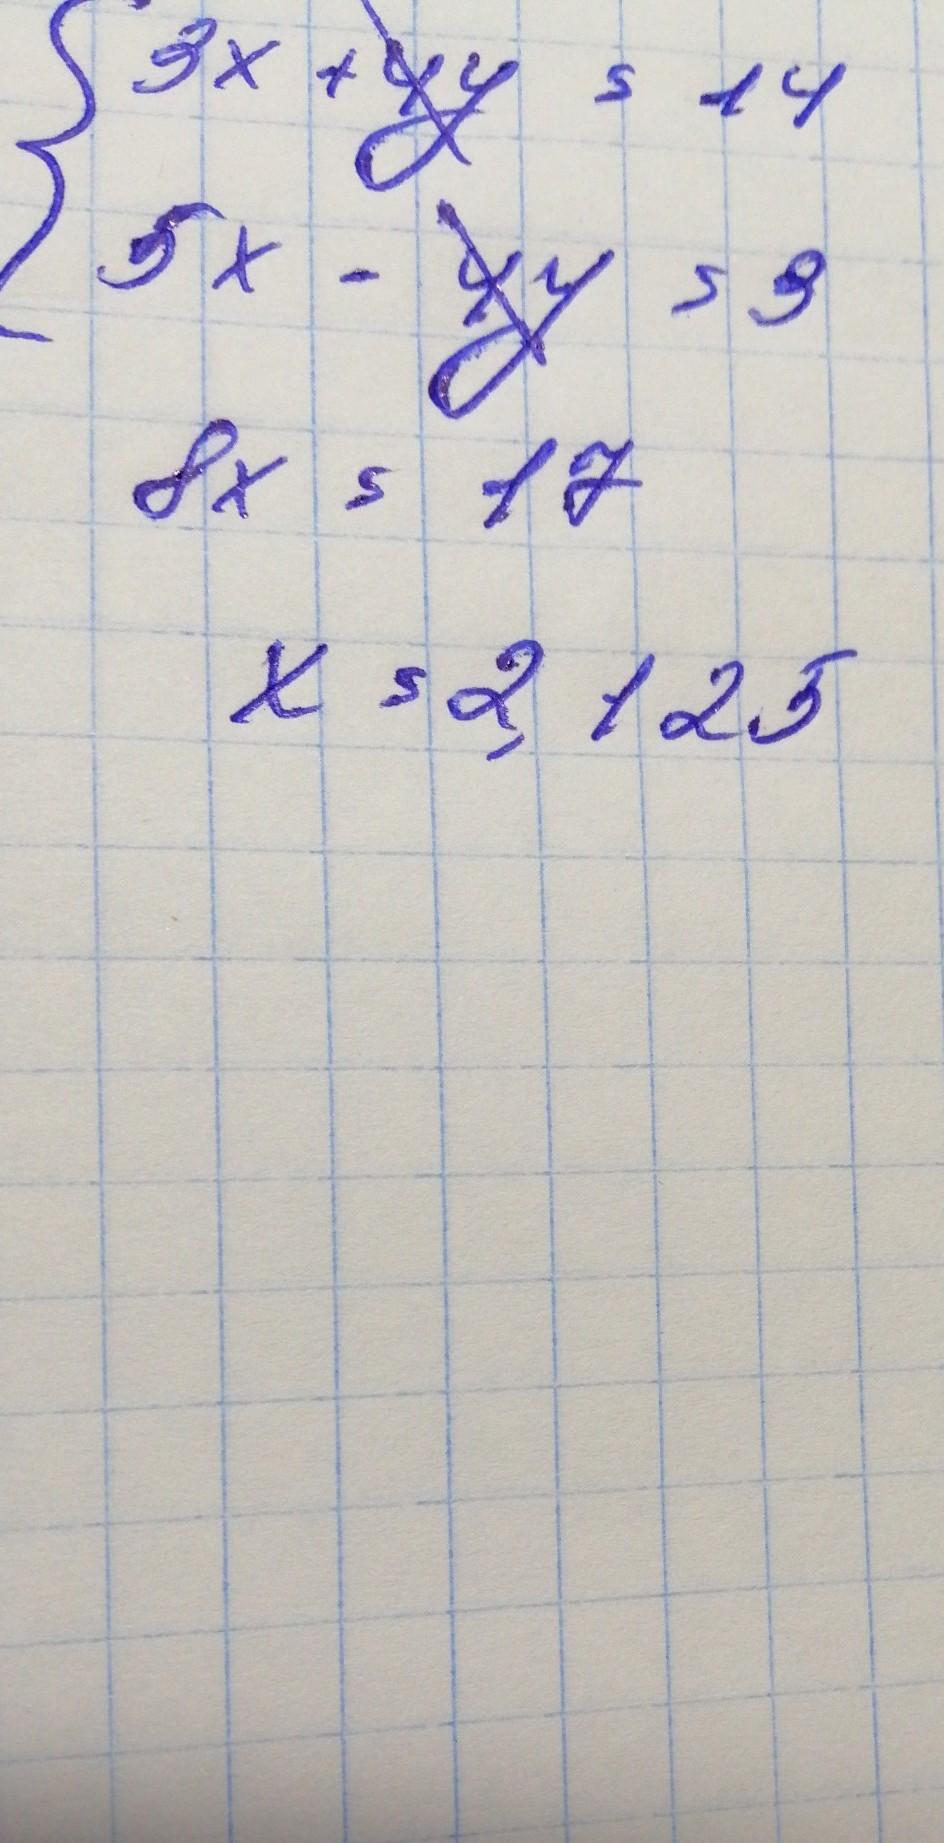 3x + 4y = 14
5x - 4y = 3
8x = 17
x = 2,125